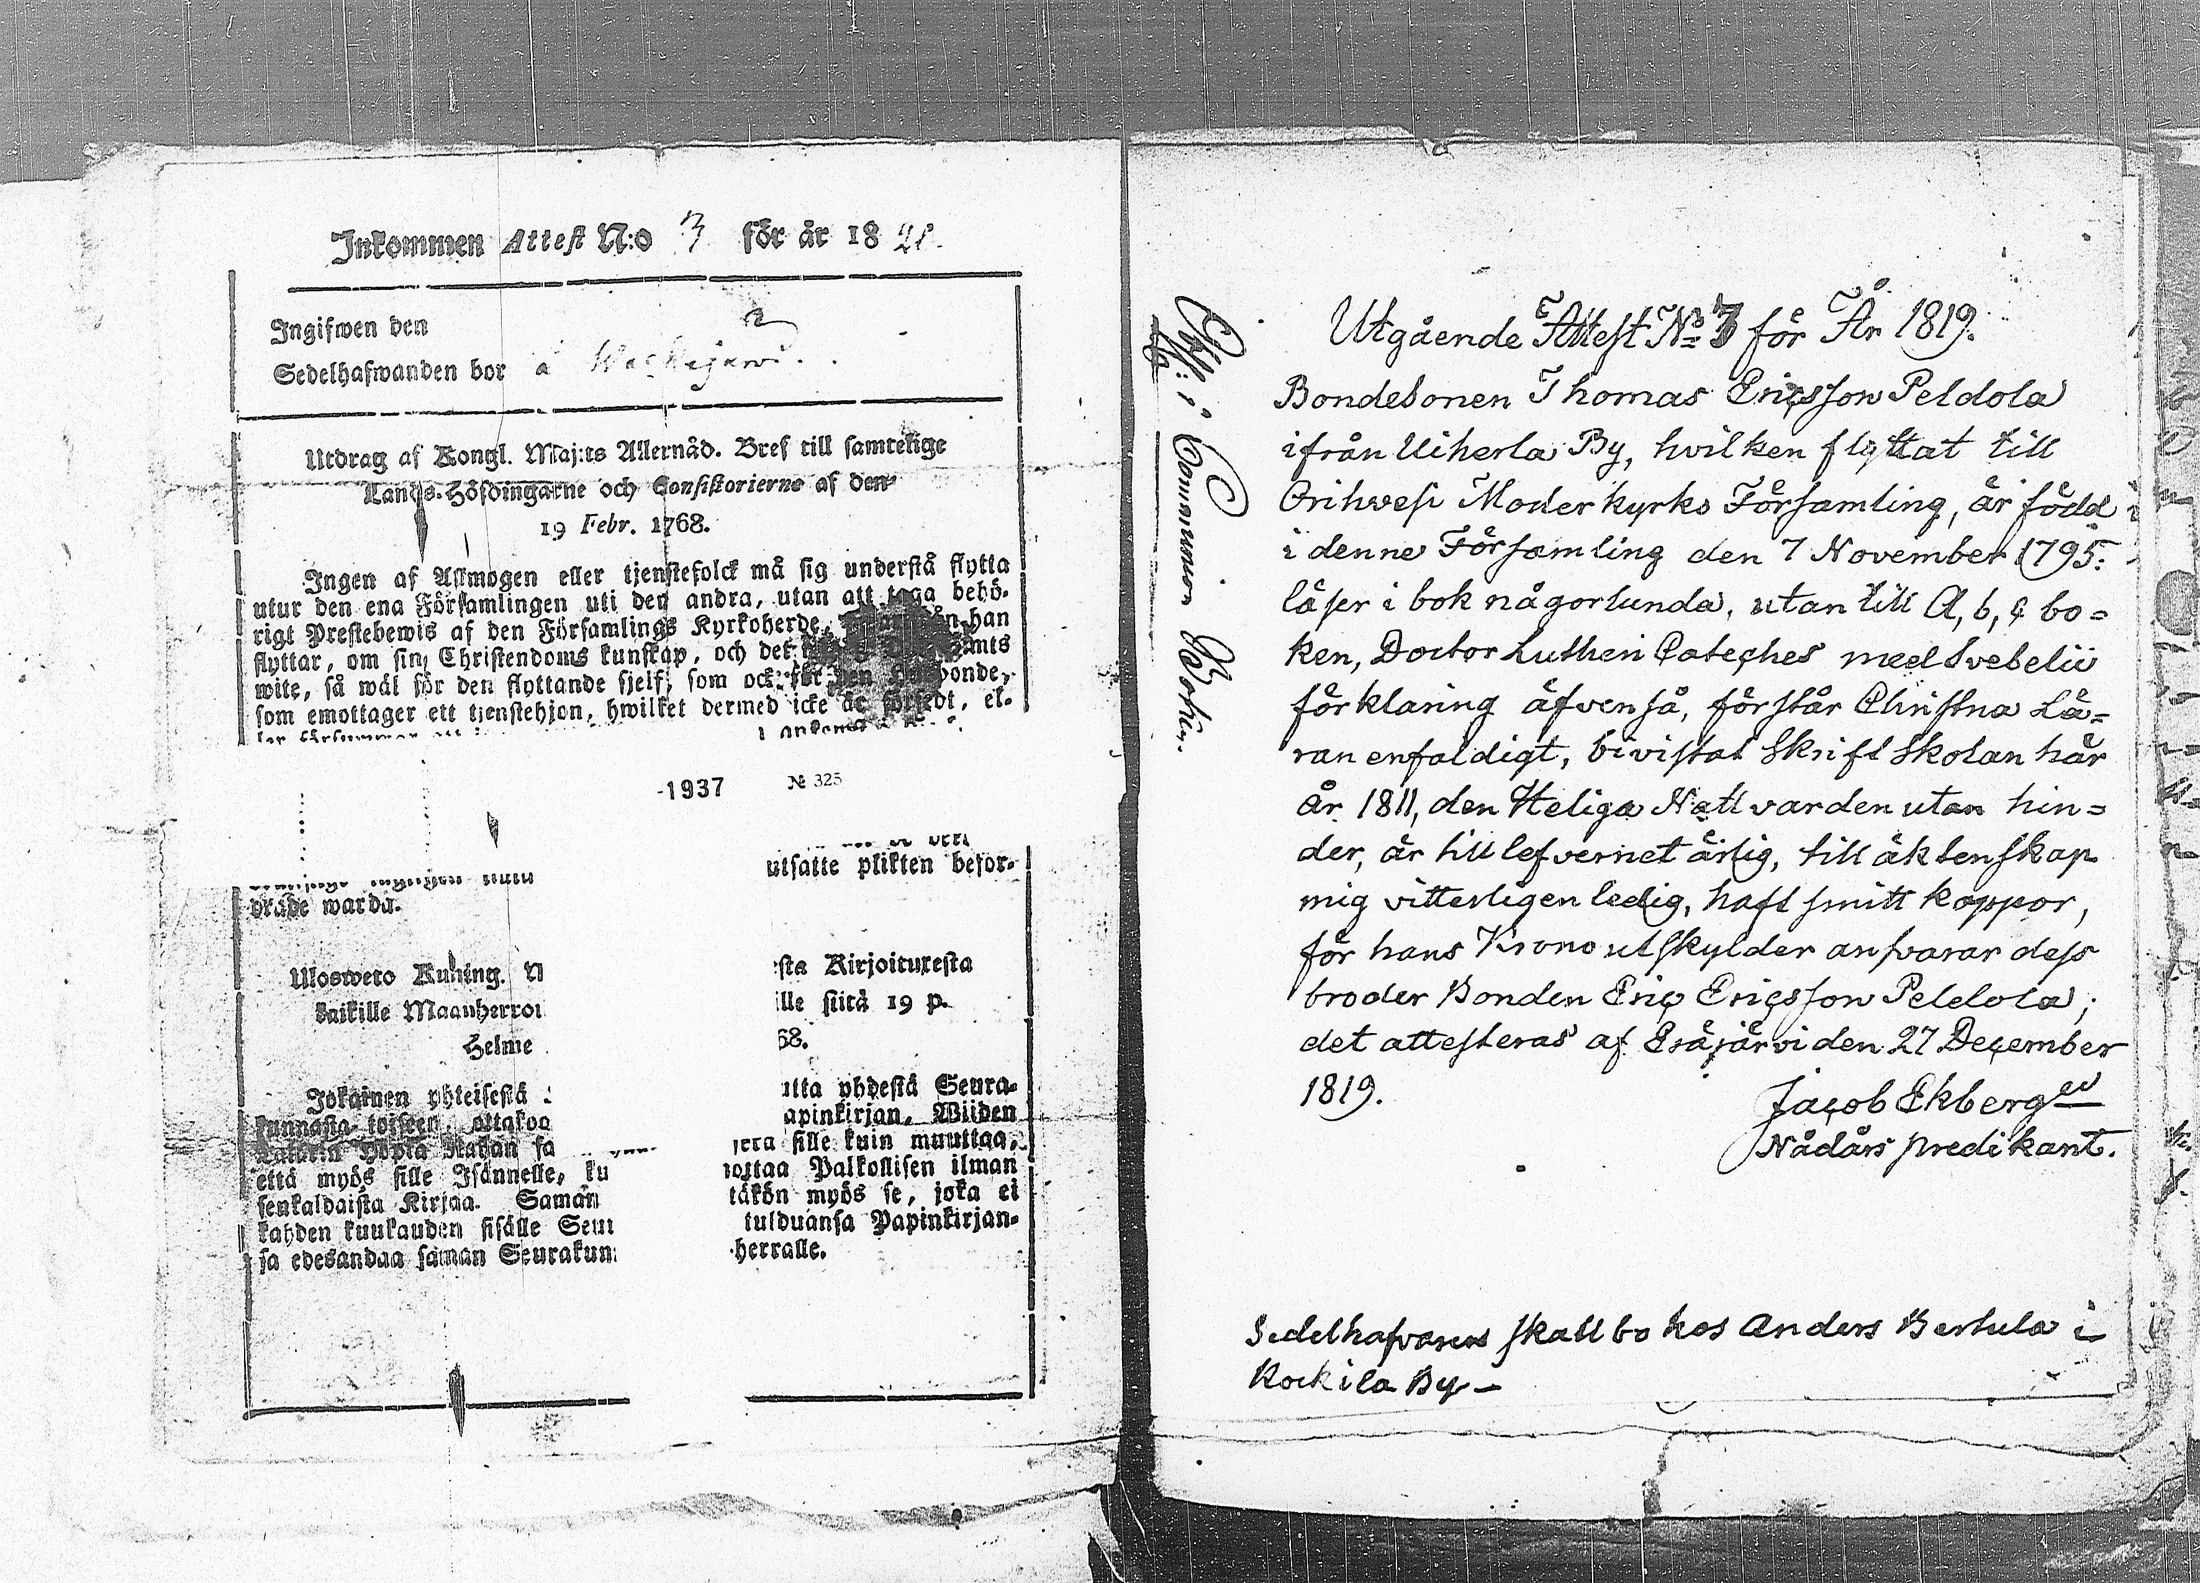 Inkommen Attest N:o 3 för år 18
Ingifwen den
Sedelhafwanden bor å
Utdrag af Kongl. Maj:ts Allernåd. Bref till samtelige
Lands-Höfdingarne och Consistorierne af den
19 Febr. 1768.
Ingen af Allmogen eller tjenstefolck må sig understå flytta
utur den ena Församlingen uti den andra, utan att taga behö-
rigt Prestebewis af den Församlings Kyrkoherde, han
flyttar, om sin Christendoms kunskap, och det
wite, så wäl för den flyttande sjelf, som ock för den
som emottager ett tjenstehjon, hwilket dermed icke är försedt, el-
-1937 № 325
utsatte plikten befor-
drade warda.
Ulosweto Kuning. sta Kirjoituxesta
kaikille Maanherroi lle siitä 19 p.
Helme 68.
Jokainen yhteisestä utta yhdestä Seura-
kunnasta toiseen, ottakoa apinkirjan, Wiiden
sille kuin muuttaa,
että myös sille Isännelle, ku ottaa Palkollisen ilman
senkaldaista Kirjaa. Saman täkön myös se, joka ei
kahden kuukauden sisälle Seur tulduansa Papinkirjan-
sa edesandaa saman Seurakun herralle.
Utgående Attest No 3 för År 1819.
Bondesonen Thomas Ericsson Peldola
ifrån Uiherla By, hvilken flyttat till
Orihvesi Moderkyrko Församling, är född
i denne Församling den 7 November 1795.
läser i bok någorlunda, utan till A, b, c bo=
ken, Doctor Lutheri Cateches med Svebelii
förklaring äfvenså, förstår Christna Lä=
ran enfaldigt, bivistat Skriftskolan här
år 1811, den Heliga Nattvarden utan hin=
der, är till lefvernet ärlig, till äktenskap
mig vitterligen ledig, haft smittkoppor,
för hans Krono utskylder ansvarar dess
broder Bonden Eric Ericsson Peldola;
det attesteras af Eräjärvi den 27 December
1819.
Jacob Ekberg
Nådårs predikant.
Sedelhafvaren skall bo hos Anders Bertula i
Kockila By